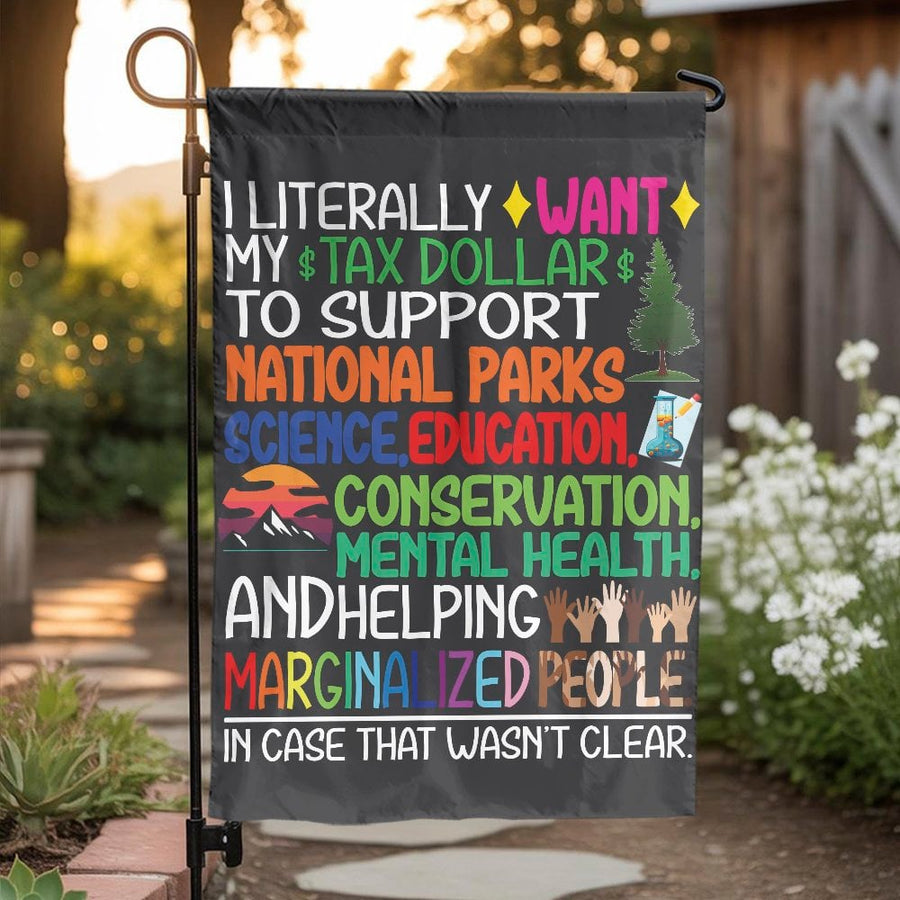 I LITERALLY WANT
MY $ TAX DOLLAR $
TO SUPPORT
NATIONAL PARKS
SCIENCE, EDUCATION,
CONSERVATION,
MENTAL HEALTH,
AND HELPING
MARGINALIZED PEOPLE
IN CASE THAT WASN'T CLEAR.